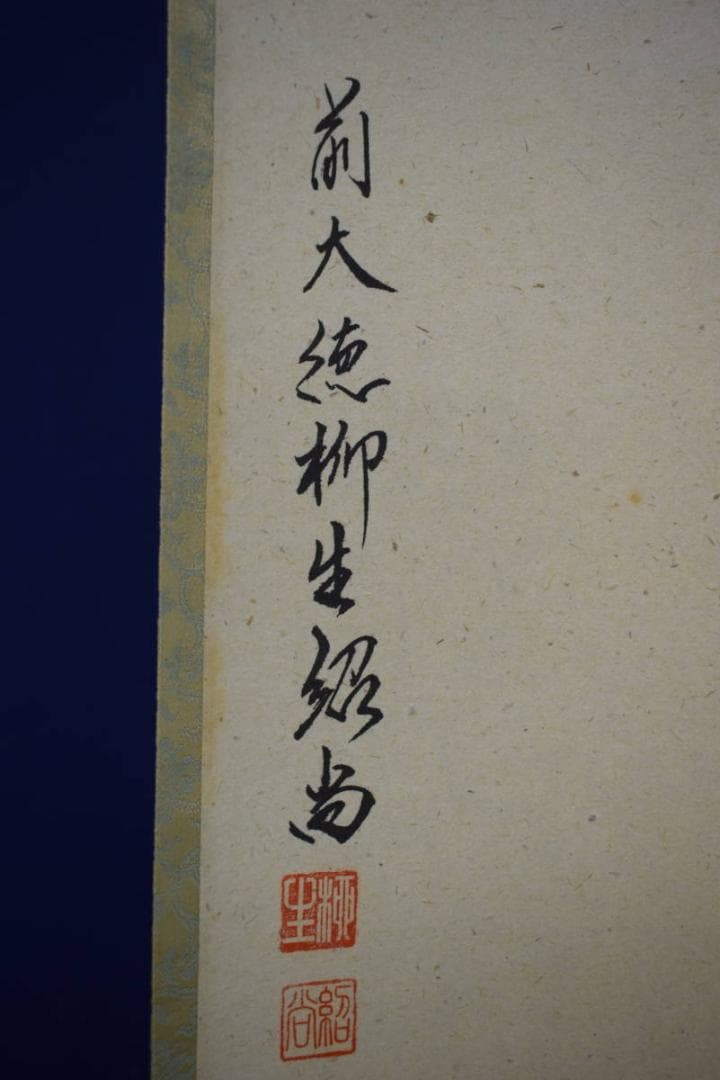 前大徳柳生紹尚
柳生
紹尚